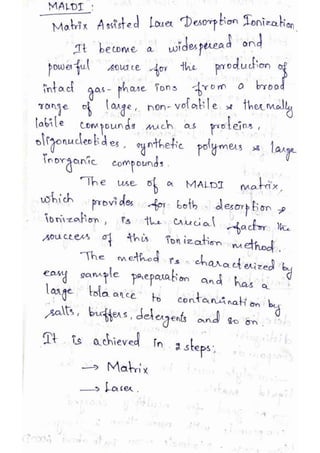 MALDI :
Matrix Assisted Laser Desorption Ionization.
It become a widespread and
powerful source for the production of
intact gas-phase ions from a broad
range of large, non-volatile & thermally
labile compounds such as proteins,
oligonucleotides, synthetic polymers & large
inorganic compounds.
The use of a MALDI matrix,
which provides for both desorption &
ionization, is the crucial factor the
success of this ionization method.
The method is characterized by
easy sample preparation and has a
large tolaance to contamination by
salts, buffers, detergents and so on.
It is achieved in 2 steps:
→ Matrix
→ Laser.